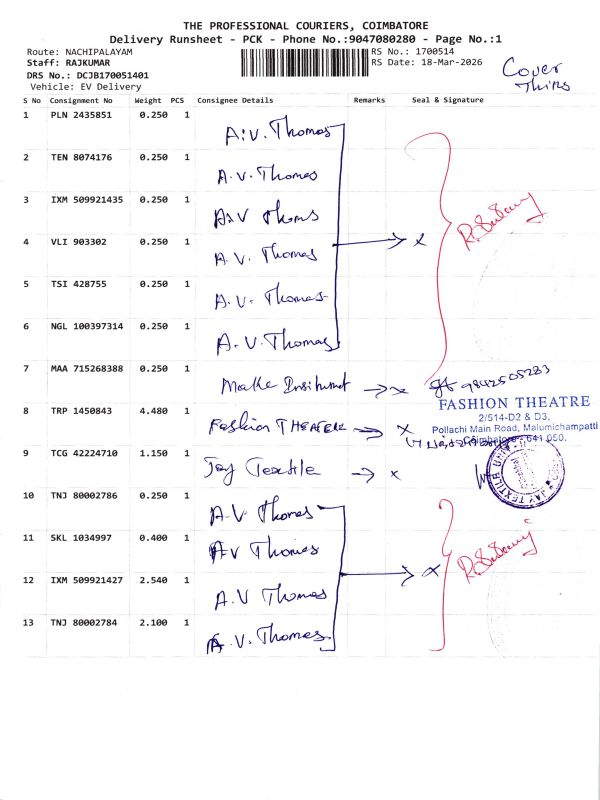 THE PROFESSIONAL COURIERS, COIMBATORE
Delivery Runsheet - PCK - Phone No.:9047080280 - Page No.:1
Route: NACHIPALAYAM
RS No.: 1700514
Staff: RAJKUMAR
RS Date: 18-Mar-2026
DRS No.: DCJB170051401
Vehicle: EV Delivery
Cover
S No Consignment No Weight PCS Consignee Details Remarks Seal & Signature
1 PLN 2435851 0.250 1 A.V. Thomas
2 TEN 8074176 0.250 1 A.V. Thomas
3 IXM 509921435 0.250 1 A.V Thoms
4 VLI 903302 0.250 1 A.V. Thomas
x
5 TSI 428755 0.250 1 A.V. Thomas
6 NGL 100397314 0.250 1 A.V. Thomas
7 MAA 715268388 0.250 1 Make x 9842505283
8 TRP 1450843 4.480 1 Fashion THEATER x
FASHION THEATRE
2/514-D2 & D3,
Pollachi Main Road, Malumichampatti
Coimbatore - 641 050.
9 TCG 42224710 1.150 1 Jay Textile x
JAY TEXTILE
10 TNJ 80002786 0.250 1 A.V Thomas
11 SKL 1034997 0.400 1 AV Thomas
x
12 IXM 509921427 2.540 1 A.V Thomas
13 TNJ 80002784 2.100 1 A.V. Thomas